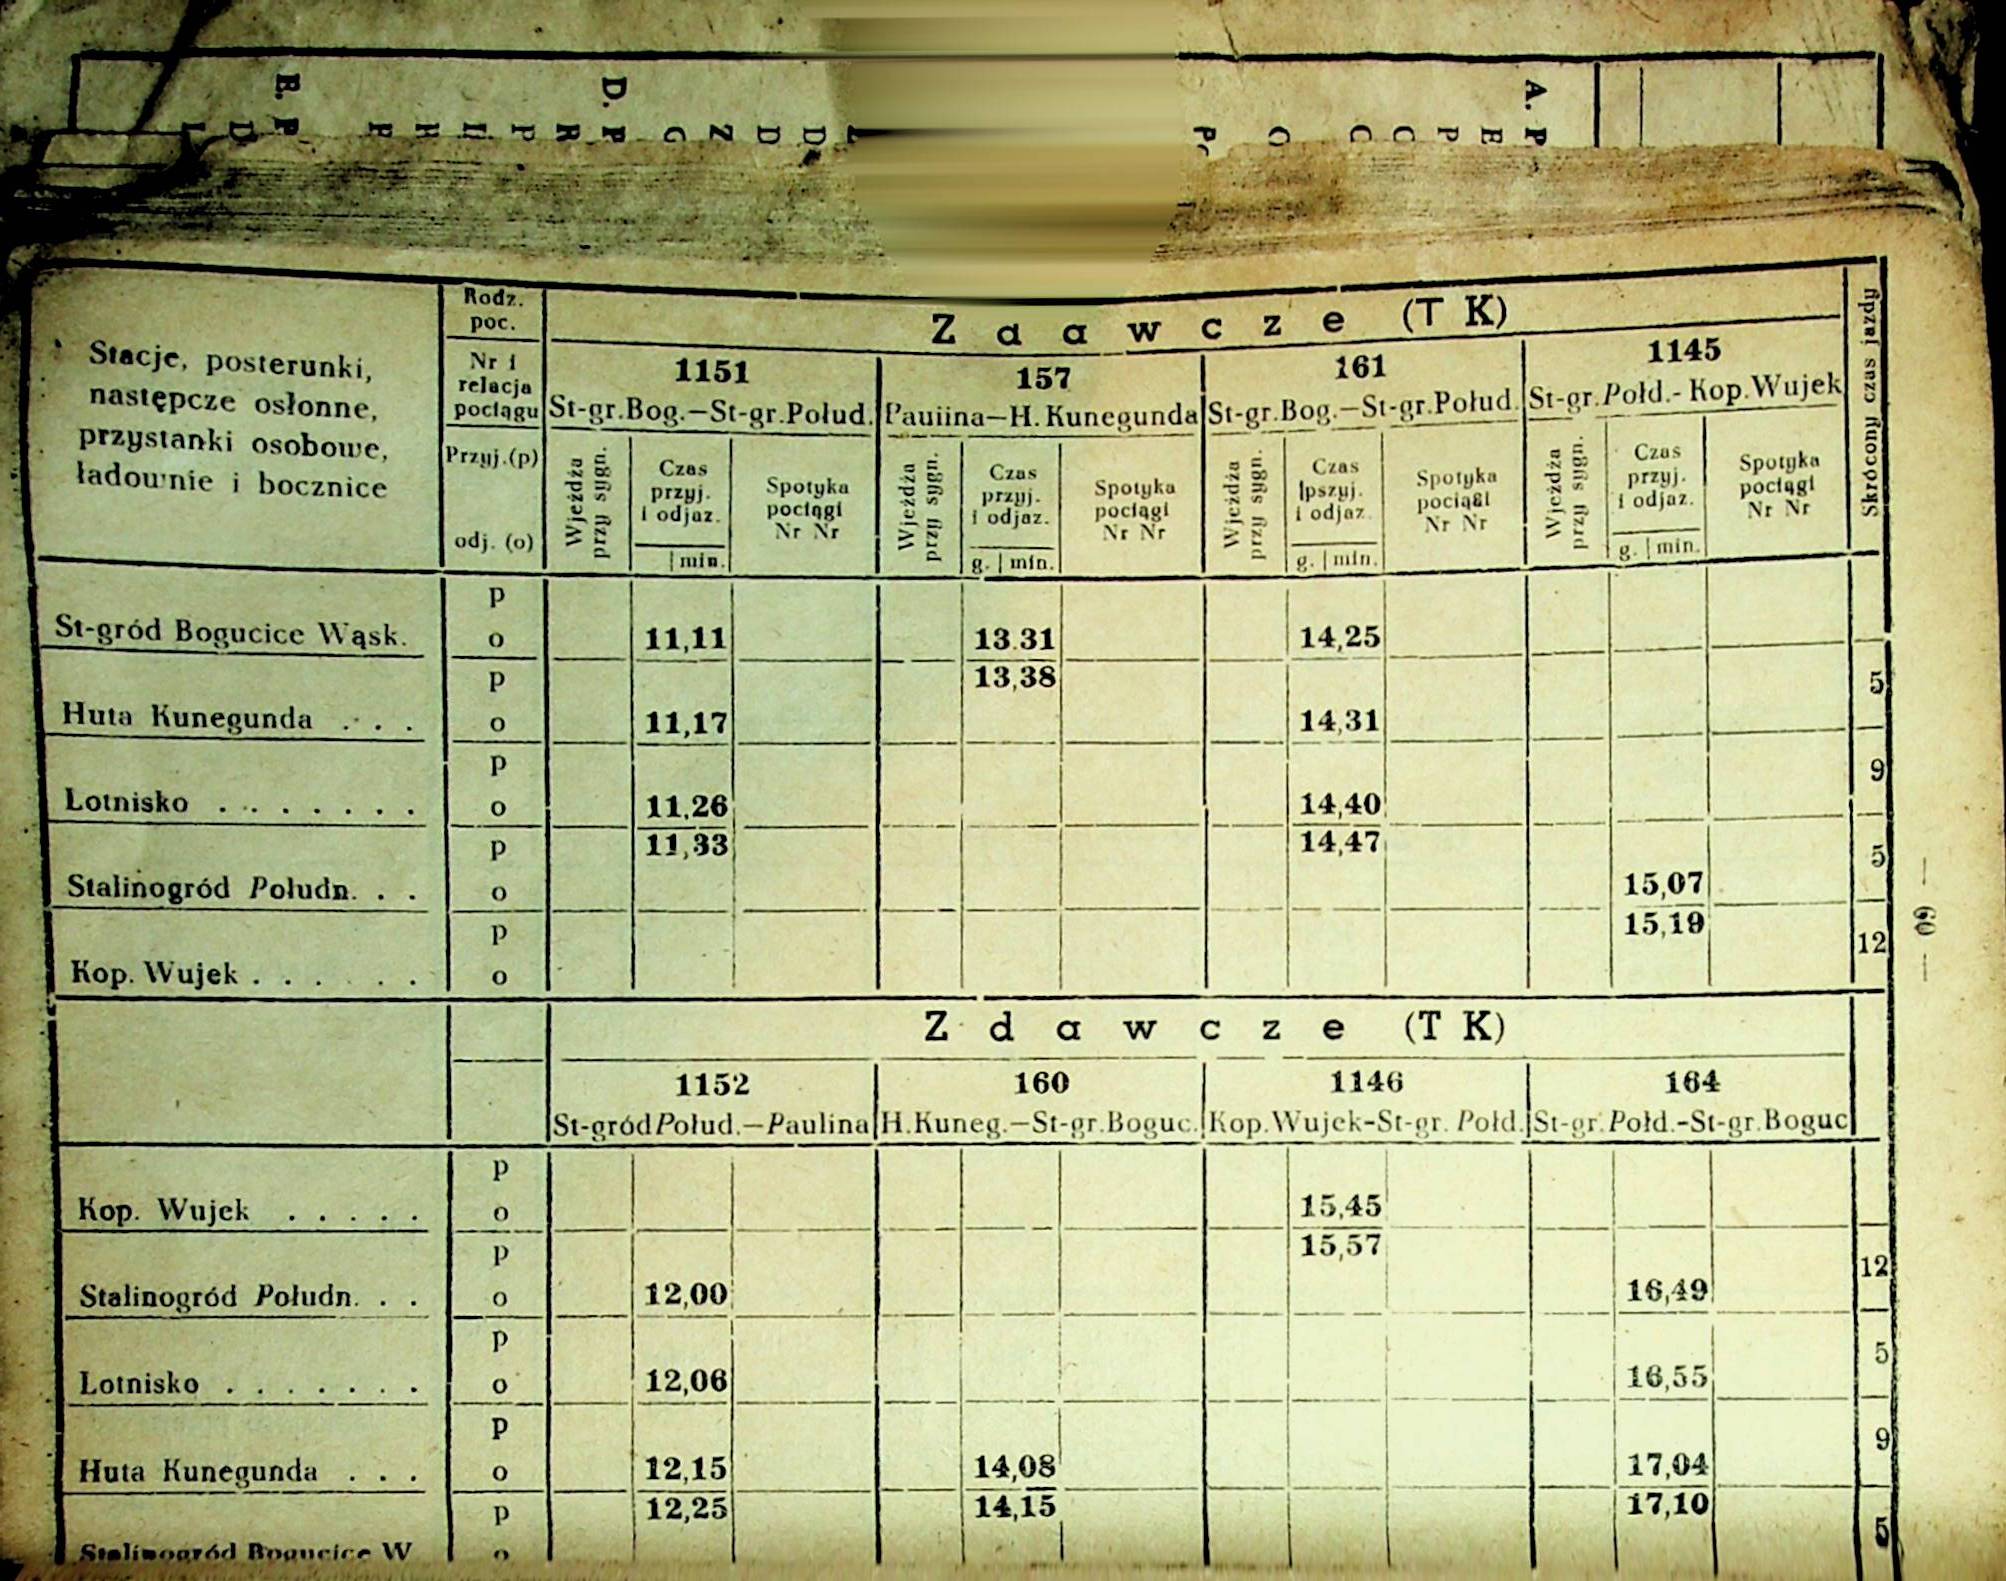 B. P D. P A. P
Zdawcze (TK)
Rodz.
poc.
Stacje, posterunki,
następcze osłonne,
przystanki osobowe,
ładownie i bocznice
Nr i
relacja
pociągu
Przyj.(p)
odj. (o)
1151 157 161 1145
St-gr.Bog.—St-gr.Połud. Pauiina—H. Kunegunda St-gr.Bog.—St-gr.Połud. St-gr.Połd.- Kop.Wujek
Skrócony czas jazdy
Wjeżdża przy sygn. Czas przyj. i odjaz. Spotyka pociągi Nr Nr Wjeżdża przy sygn. Czas przyj. i odjaz. Spotyka pociągi Nr Nr Wjeżdża przy sygn. Czas pszyj. i odjaz. Spotyka pociągi Nr Nr Wjeżdża przy sygn. Czas przyj. i odjaz. Spotyka pociągi Nr Nr
min. g. min. g. min. g. min.
p
St-gród Bogucice Wąsk. o 11,11 13.31 14,25
p 13,38 5
Huta Kunegunda . . . o 11,17 14,31
p 9
Lotnisko . . . . . . . o 11,26 14,40
p 11,33 14,47 5
Stalinogród Południ. . . o 15,07
p 15,19 12
Kop. Wujek . . . . . . o
— 60 —
Zdawcze (TK)
1152 160 1146 164
St-gródPołud.—Paulina H.Kuneg.—St-gr.Boguc. Kop.Wujek-St-gr. Połd. St-gr.Połd.-St-gr.Boguc
p
Kop. Wujek . . . . . o 15,45
p 15,57 12
Stalinogród Południ. . . o 12,00 16,49
p 5
Lotnisko . . . . . . . o 12,06 16,55
p 9
Huta Kunegunda . . . o 12,15 14,08 17,04
p 12,25 14,15 17,10 5
Stalinogród Bogucice W o